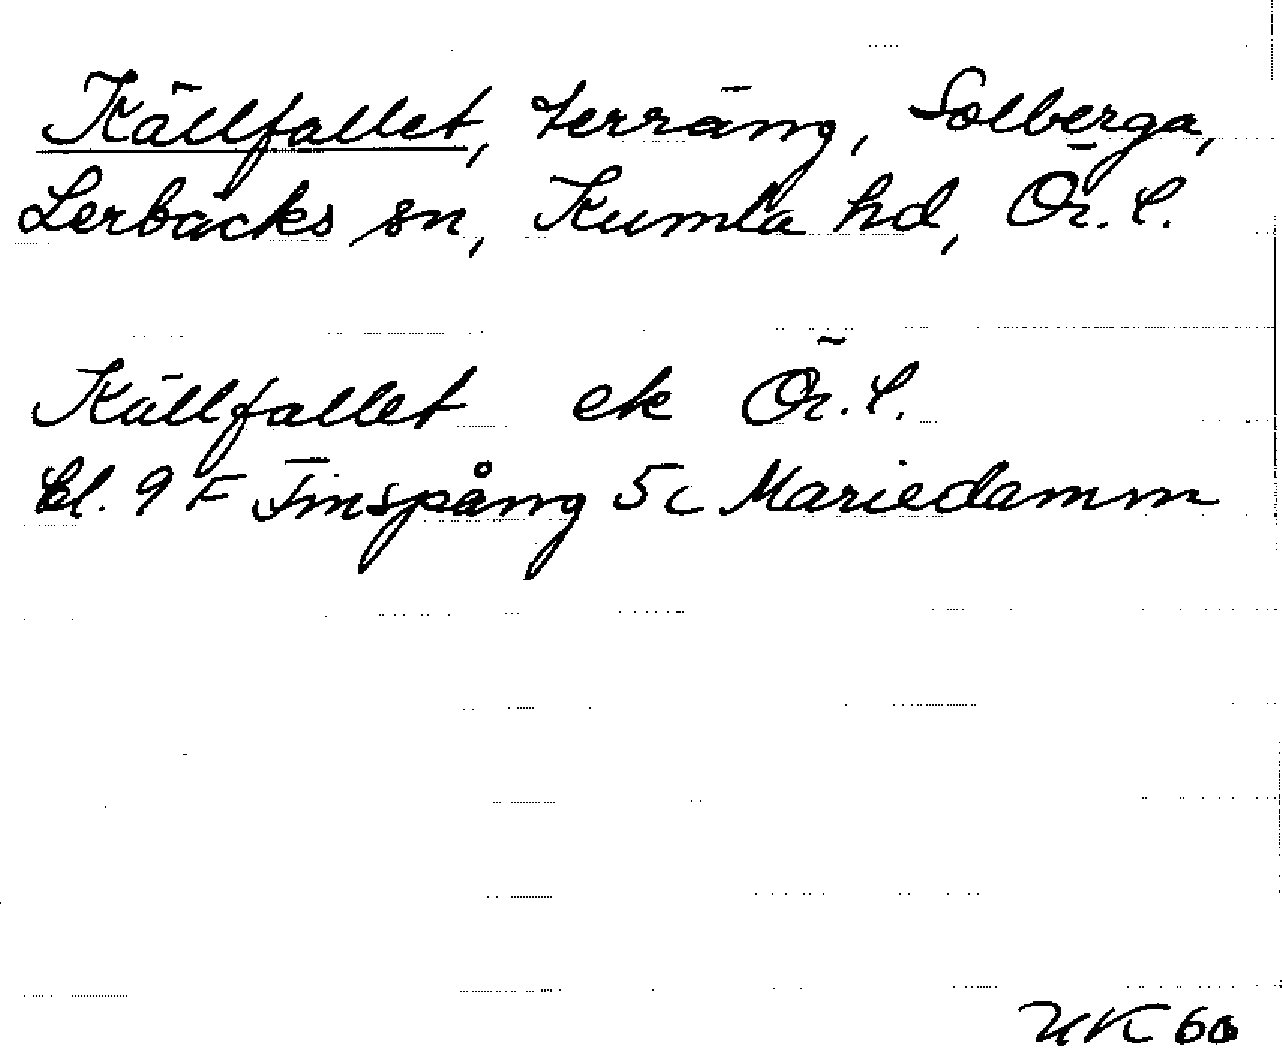 Källfallet, terräng, Solberga,
Lerbäcks sn, Kumla hd, Ör. l.
Källfallet ek Ör. l.
bl. 9 F Finspång 5c Mariedamm
UK 60